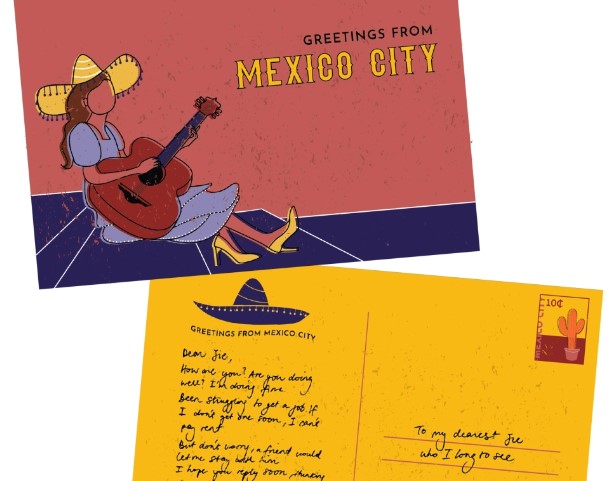 GREETINGS FROM
MEXICO CITY
GREETINGS FROM MEXICO CITY
Dear Jie,
How are you? Are you doing
well? I'm doing fine.
Been struggling to get a job. If
I don't get one soon, I can't
pay rent
But don't worry, a friend would
let me stay with him
I hope you reply soon, thinking
MEXICO CITY
10¢
To my dearest Jie
who I long to see